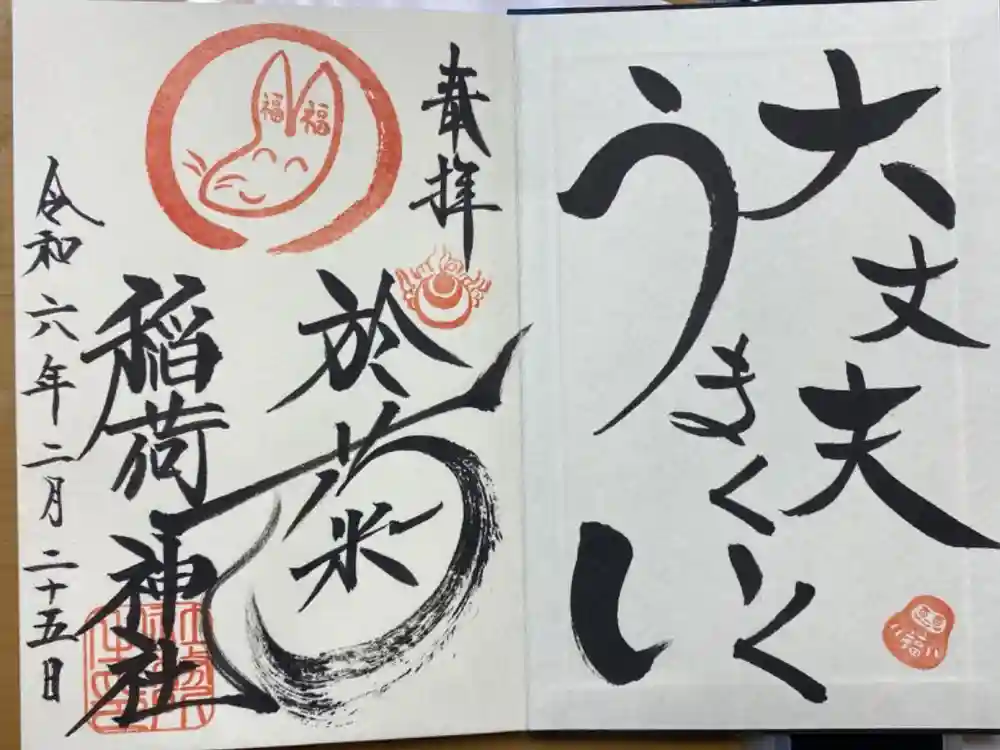 大丈夫
うまくいく
福
奉拝
於菊
稲荷神社
令和六年二月二十五日
福 福